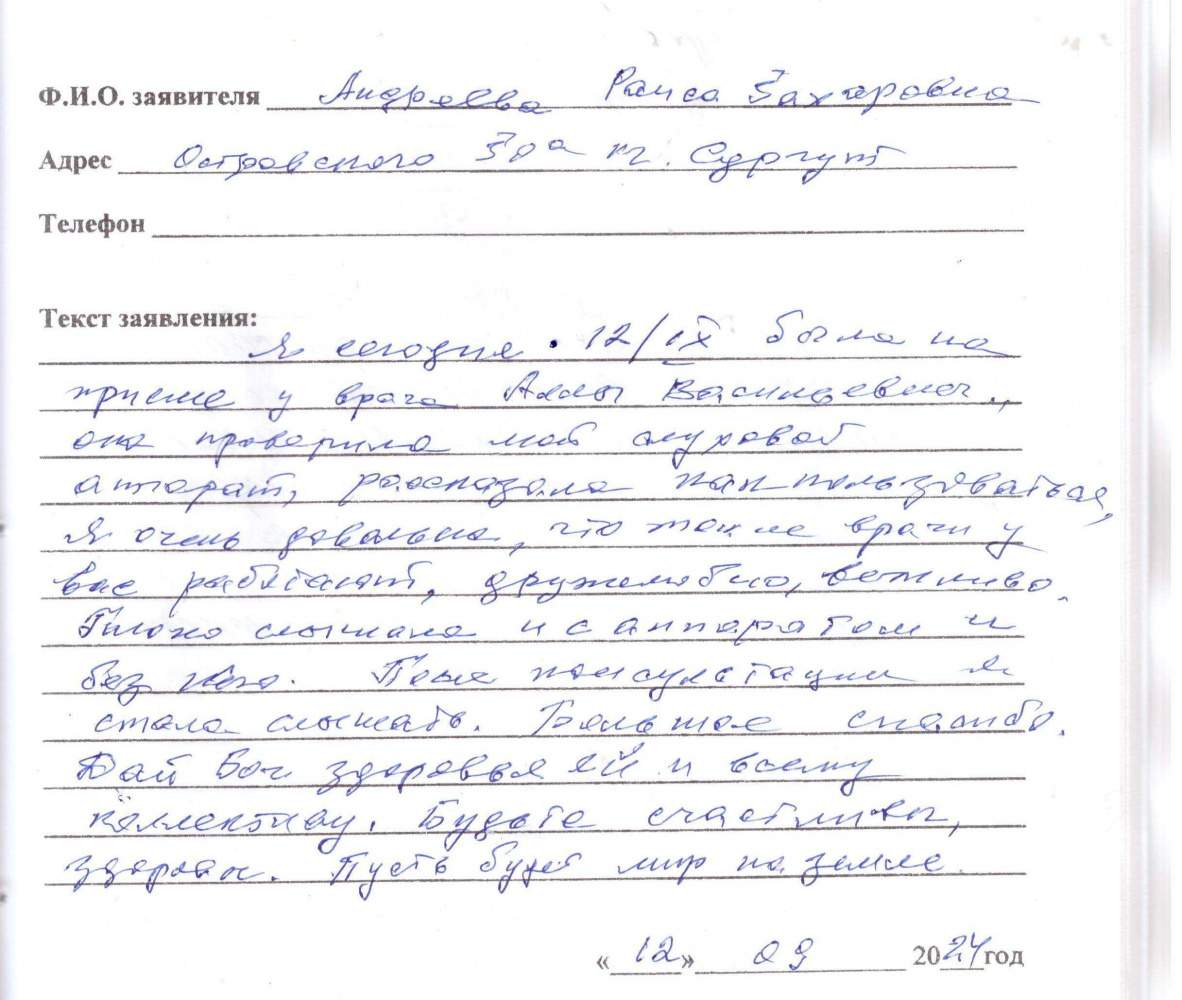 Ф.И.О. заявителя Андреева Раиса Захаровна
Адрес Островского 30а г. Сургут
Телефон
Текст заявления:
Я сегодня 12/IX была на
приеме у врача Аллы Васильевны.,
она проверила мой слуховой
аппарат, рассказала как пользоваться,
Я очень довольна, что такие врачи у
вас работают, дружелюбно, вежливо.
Плохо слышала и с аппаратом и
без него. После консультации я
стала слышать. Большое спасибо.
Дай Бог здоровья ей и всему
коллективу. Будьте счастливы,
здоровы. Пусть будет мир на земле.
«12» 09 2024 год